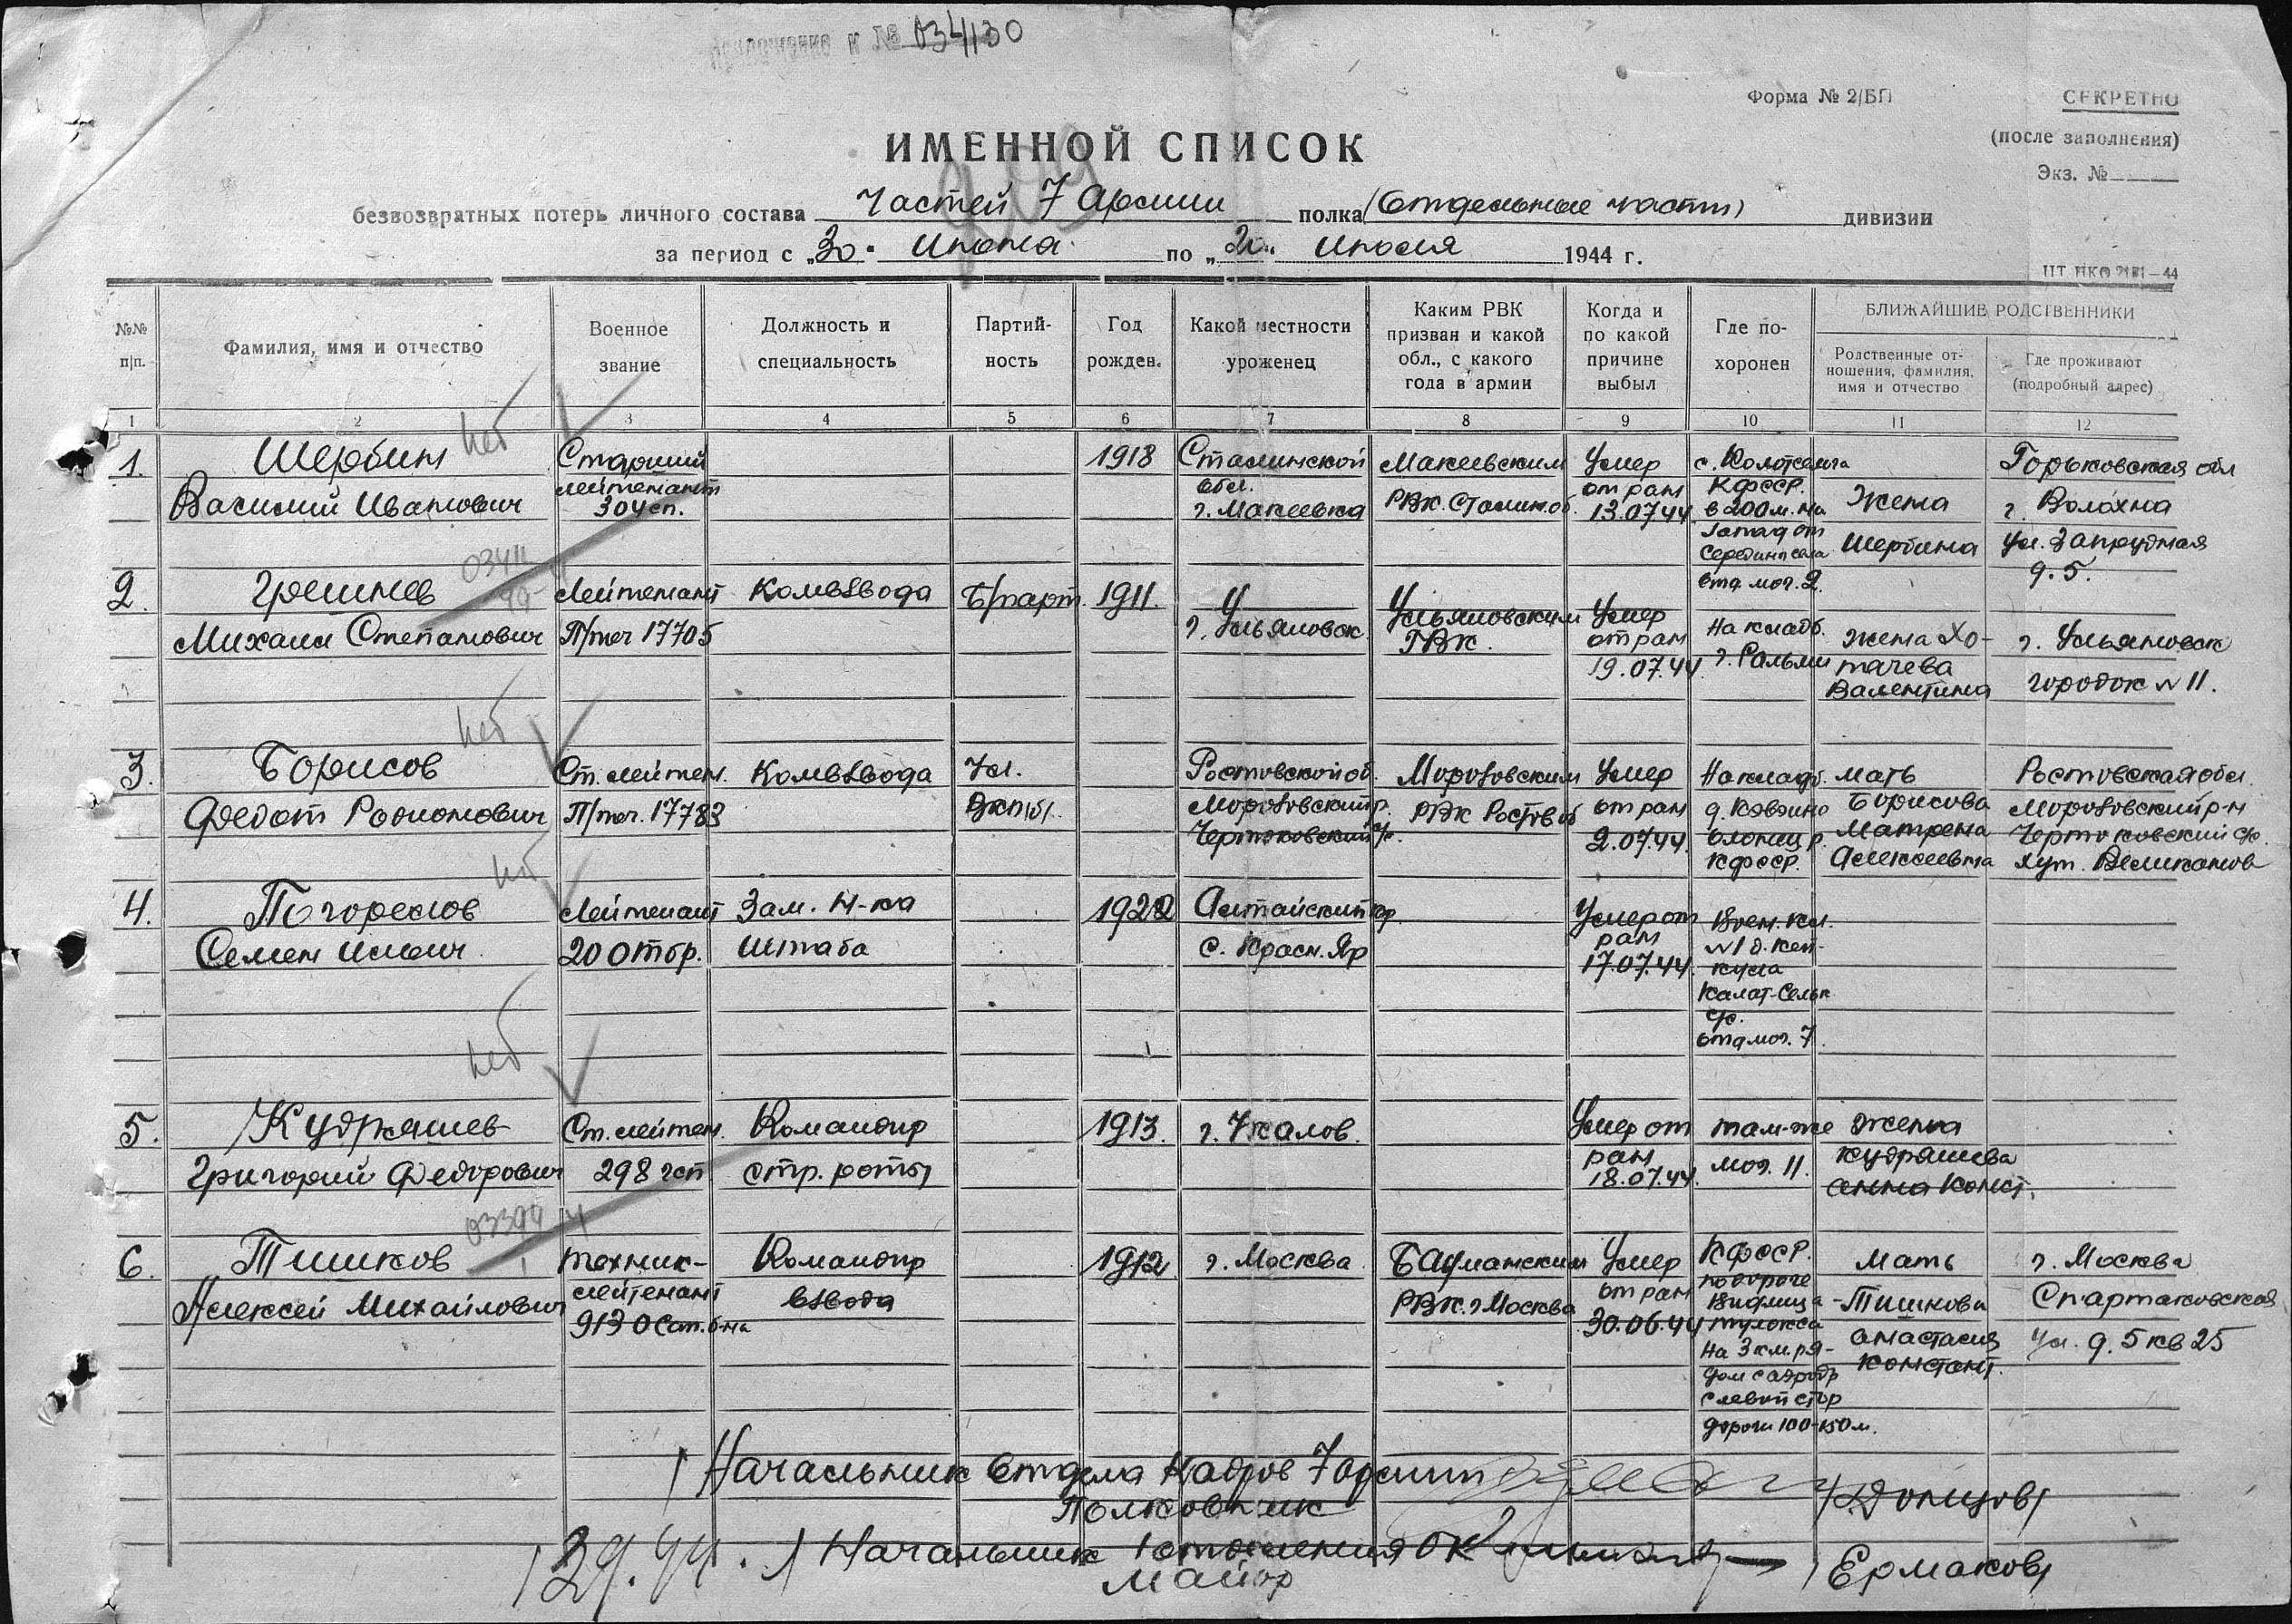 Приложение к № 034130
Форма № 2/БП
СЕКРЕТНО
(после заполнения)
Экз. №
ИМЕННОЙ СПИСОК
безвозвратных потерь личного состава частей 7 Армии полка (Отдельные части) дивизии
за период с „30" июня по „20" июля 1944 г.
№№ п/п.
Фамилия, имя и отчество
Военное звание
Должность и специальность
Партий-
ность
Год рожден.
Какой местности уроженец
Каким РВК
призван и какой
обл., с какого
года в армии
Когда и
по какой
причине
выбыл
Где по-
хоронен
БЛИЖАЙШИЕ РОДСТВЕННИКИ
Родственные от-
ношения, фамилия,
имя и отчество
Где проживают
(подробный адрес)
1 2 3 4 5 6 7 8 9 10 11 12
1.
Шербин
Василий Иванович
нет
Старший
лейтенант
304 сп.
1918
Сталинской
обл.
г. Макеевка
Макеевским
РВК. Сталин. об.
Умер
от ран
13.07.44
КФССР.
в 200 м. на
запад от
середины села
отд. мог. 2.
Жена
Шербина
Горьковская обл
г. Волохна
ул. Запрудная
д. 5.
2.
Грешнев
Михаил Степанович
Лейтенант
П/поч 17705
Комвзвода
Б/парт.
1911.
г. Ульяновск
Ульяновским
ГВК.
Умер
от ран
19.07.44.
На кладб.
г. Сальми
жена Хо-
тачева
Валентина
г. Ульяновск
городок № 11.
3.
Борисов
Федот Родионович
нет
Ст. лейтен.
П/поч. 17783
Комвзвода
Чл.
ВКП/б/.
Ростовской об.
Морозовский р.
Чертоковский с/с.
Морозовским
РВК Ростов об
Умер
от ран
2.07.44.
На кладб.
Олонец р.
КФССР.
мать
Борисова
Матрена
Алексеевна
Ростовская обл
Морозовский р-н
Чертоковский с/с.
хут. Великанов
4.
Погорелов
Семен Ильич
нет
Лейтенант
20 отбр.
Зам. Н-ка
штаба
1922
Алтайский кр.
с. Красн. Яр
Умер от
ран
17.07.44.
Воен. кл.
с/с.
отд. мог. 7.
5.
Кудряшев
Григорий Федорович
нет
Ст. лейтен.
298 гсп
Командир
стр. роты
1913.
г. Чкалов.
Умер от
ран
18.07.44.
там-же
мог. 11.
жена
Кудряшева
Анна Конст.
6.
Тишков
Алексей Михайлович
техник-
лейтенант
Командир
взвода
1912
г. Москва
Бауманским
РВК. г Москва
Умер
от ран
30.06.44
КФССР.
по дороге
Видлица-
Тулокса
на 3 км ря-
дом с аэродр
с левой стор
дороги 100-150 м.
Мать
Тишкова
Анастасия
Констант.
г. Москва
Спартаковская
ул. д. 5 кв 25
Начальник Отдела Кадров 7 армии
Полковник
/Донцов/
Начальник 1 отделения ОК
Майор
/Ермаков/